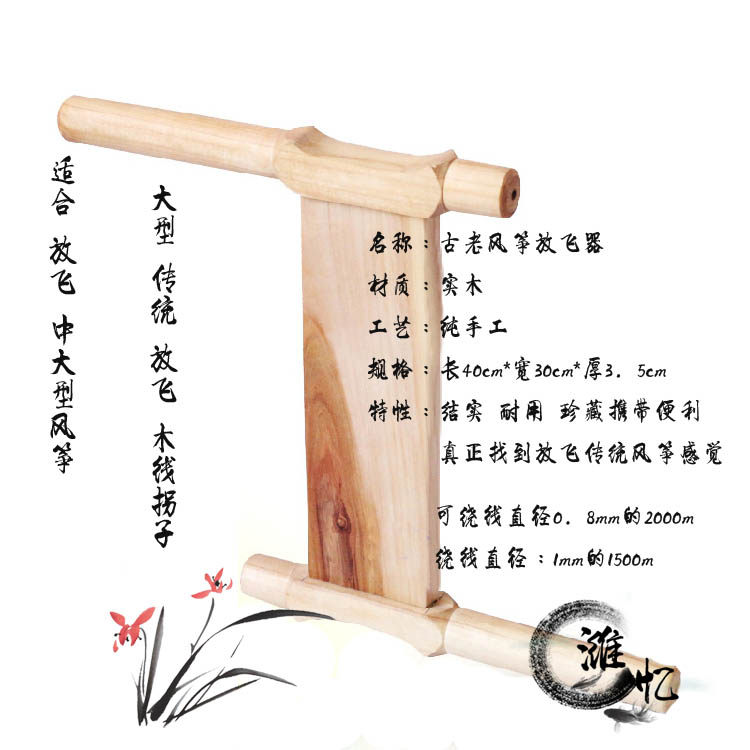 适合 放飞 中大型风筝
大型 传统 放飞 木线拐子
名称：古老风筝放飞器
材质：实木
工艺：纯手工
规格：长40cm*宽30cm*厚3.5cm
特性：结实 耐用 珍藏携带便利
真正找到放飞传统风筝感觉
可绕线直径0.8mm的2000m
绕线直径：1mm的1500m
潍忆